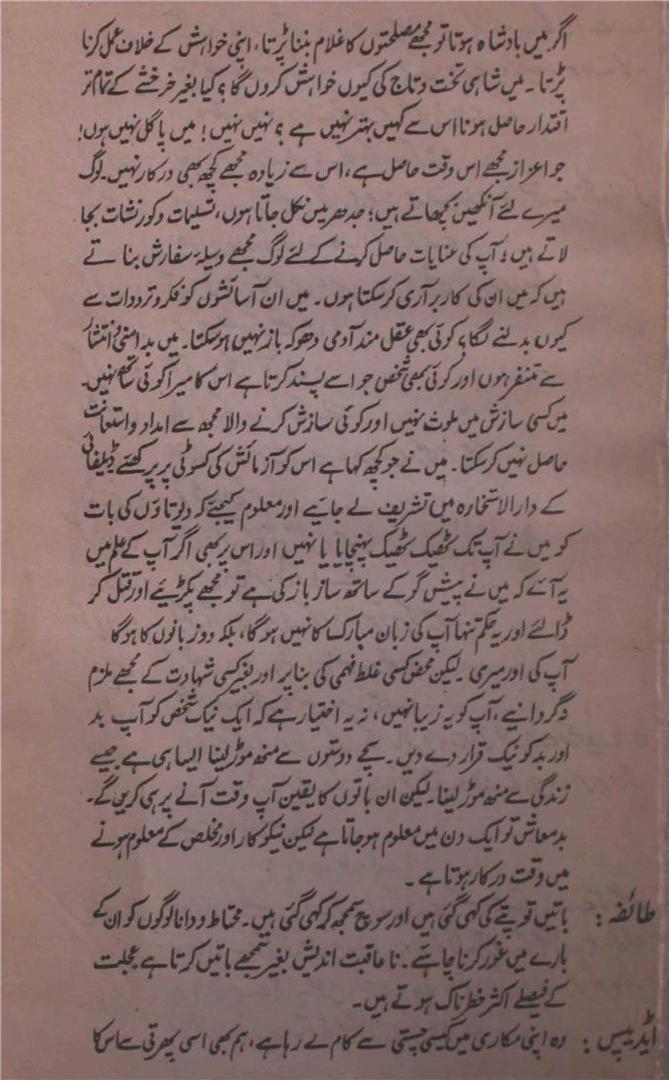 اگر میں بادشاہ ہوتا تو مجھے مصلحتوں کا غلام بننا پڑتا، اپنی خواہش کے خلاف عمل کرنا
پڑتا۔ میں شاہی تخت و تاج کی کیوں خواہش کروں گا؟ کیا بغیر خرخشے کے تمام تر
اقتدار حاصل ہونا اس سے کہیں بہتر نہیں ہے؟ نہیں نہیں! میں پاگل نہیں ہوں!
جو اعزاز مجھے اس وقت حاصل ہے، اس سے زیادہ مجھے کچھ بھی درکار نہیں۔ لوگ
میرے لئے آنکھیں بچھاتے ہیں؛ جدھر میں نکل جاتا ہوں، تسلیمات و کورنشات بجا
لاتے ہیں؛ آپ کی عنایات حاصل کرنے کے لئے لوگ مجھے وسیلۂ سفارش بناتے
ہیں کہ میں ان کی کاربرآری کرسکتا ہوں۔ میں ان آسائشوں کو فکر و ترددات سے
کیوں بدلنے لگا؟ کوئی بھی عقل مند آدمی دھوکہ باز نہیں ہوسکتا۔ میں بدامنی و انتشار
سے متنفر ہوں اور کوئی بھی شخص جو اسے پسند کرتا ہے اس کا میرا کوئی ساتھ نہیں۔
میں کسی سازش میں ملوث نہیں اور کوئی سازش کرنے والا مجھ سے امداد و استعانت
حاصل نہیں کرسکتا۔ میں نے جو کچھ کہا ہے اس کو آزمائش کی کسوٹی پر پرکھئے ڈیلفائی
کے دارالاستخارہ میں تشریف لے جائیے اور معلوم کیجئے کہ دیوتاؤں کی بات
کو میں نے آپ تک ٹھیک ٹھیک پہنچایا یا نہیں اور اس پر بھی اگر آپ کے علم میں
یہ آئے کہ میں نے پیش گر کے ساتھ ساز باز کی ہے تو مجھے پکڑئیے اور قتل کر
ڈالئے اور یہ حکم تنہا آپ کی زبان مبارک کا نہیں ہوگا، بلکہ دو زبانوں کا ہوگا
آپ کی اور میری۔ لیکن محض کسی غلط فہمی کی بنا پر اور بغیر کسی شہادت کے مجھے ملزم
نہ گردانیے، آپ کو یہ زیبا نہیں، نہ یہ اختیار ہے کہ ایک نیک شخص کو آپ بد
اور بد کو نیک قرار دے دیں۔ سچے دوستوں سے منھ موڑ لینا ایسا ہی ہے جیسے
زندگی سے منھ موڑ لینا۔ لیکن ان باتوں کا یقین آپ وقت آنے پر ہی کریں گے۔
بدمعاش تو ایک دن میں معلوم ہوجاتا ہے لیکن نیکوکار اور مخلص کے معلوم ہونے
میں وقت درکار ہوتا ہے۔
طائفہ: باتیں تو پتے کی کہی گئی ہیں اور سوچ سمجھ کر کہی گئی ہیں۔ محتاط و دانا لوگوں کو ان کے
بارے میں غور کرنا چاہئے۔ ناعاقبت اندیش بغیر سمجھے باتیں کرتا ہے عجلت
کے فیصلے اکثر خطرناک ہوتے ہیں۔
ایڈیپس: وہ اپنی مکاری میں کیسی چستی سے کام لے رہا ہے، ہم بھی اسی پھرتی سے اس کا